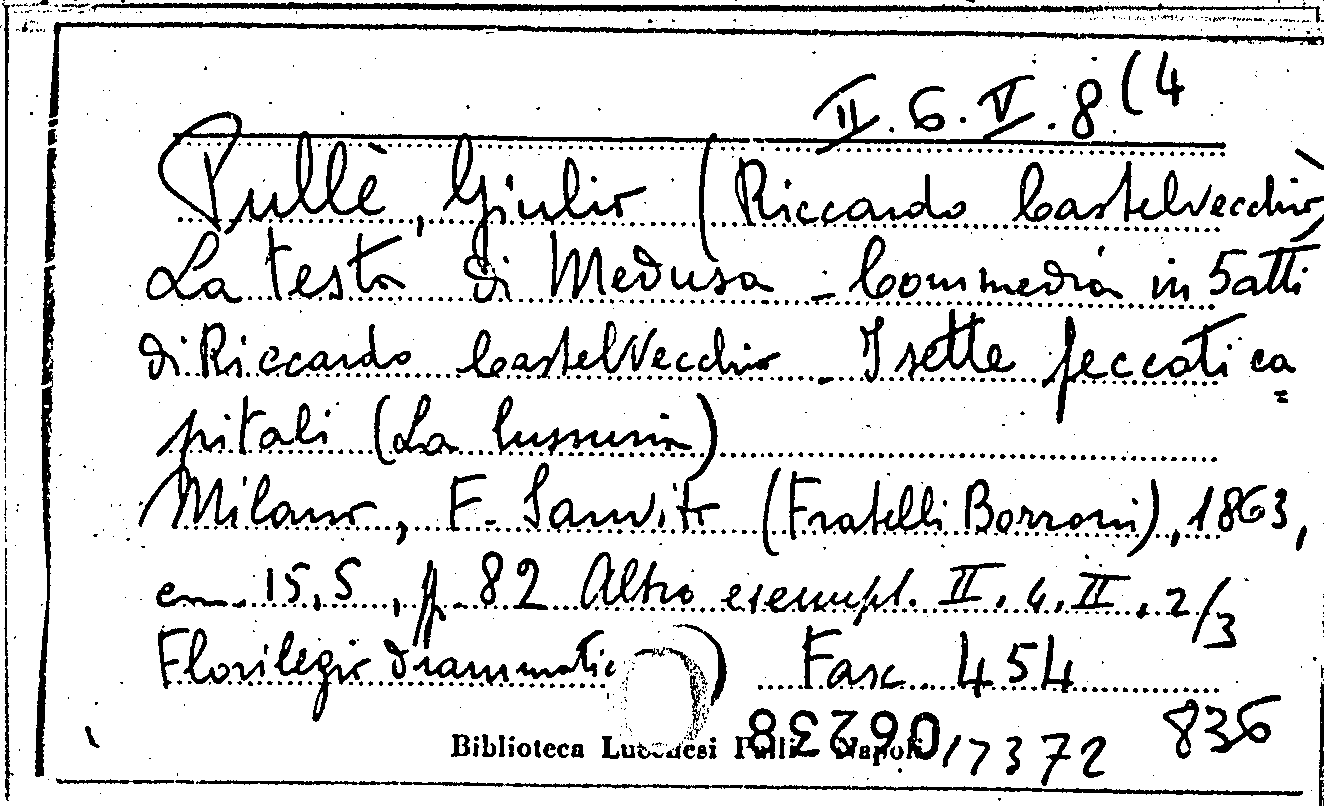 II.6.V.8(4
Pullè, Giulio (Riccardo Castelvecchio)
La testa di Medusa - Commedia in 5 atti
di Riccardo Castelvecchio - I sette peccati ca=
pitali (La lussuria)
Milano, F. Sanvito (Fratelli Borroni), 1863,
cm. 15,5, p. 82 Altro esempl. II.4.II.2/3
Florilegio drammatico) Fasc. 454
836
062238
Biblioteca Lucchesi Palli - Napoli 17372